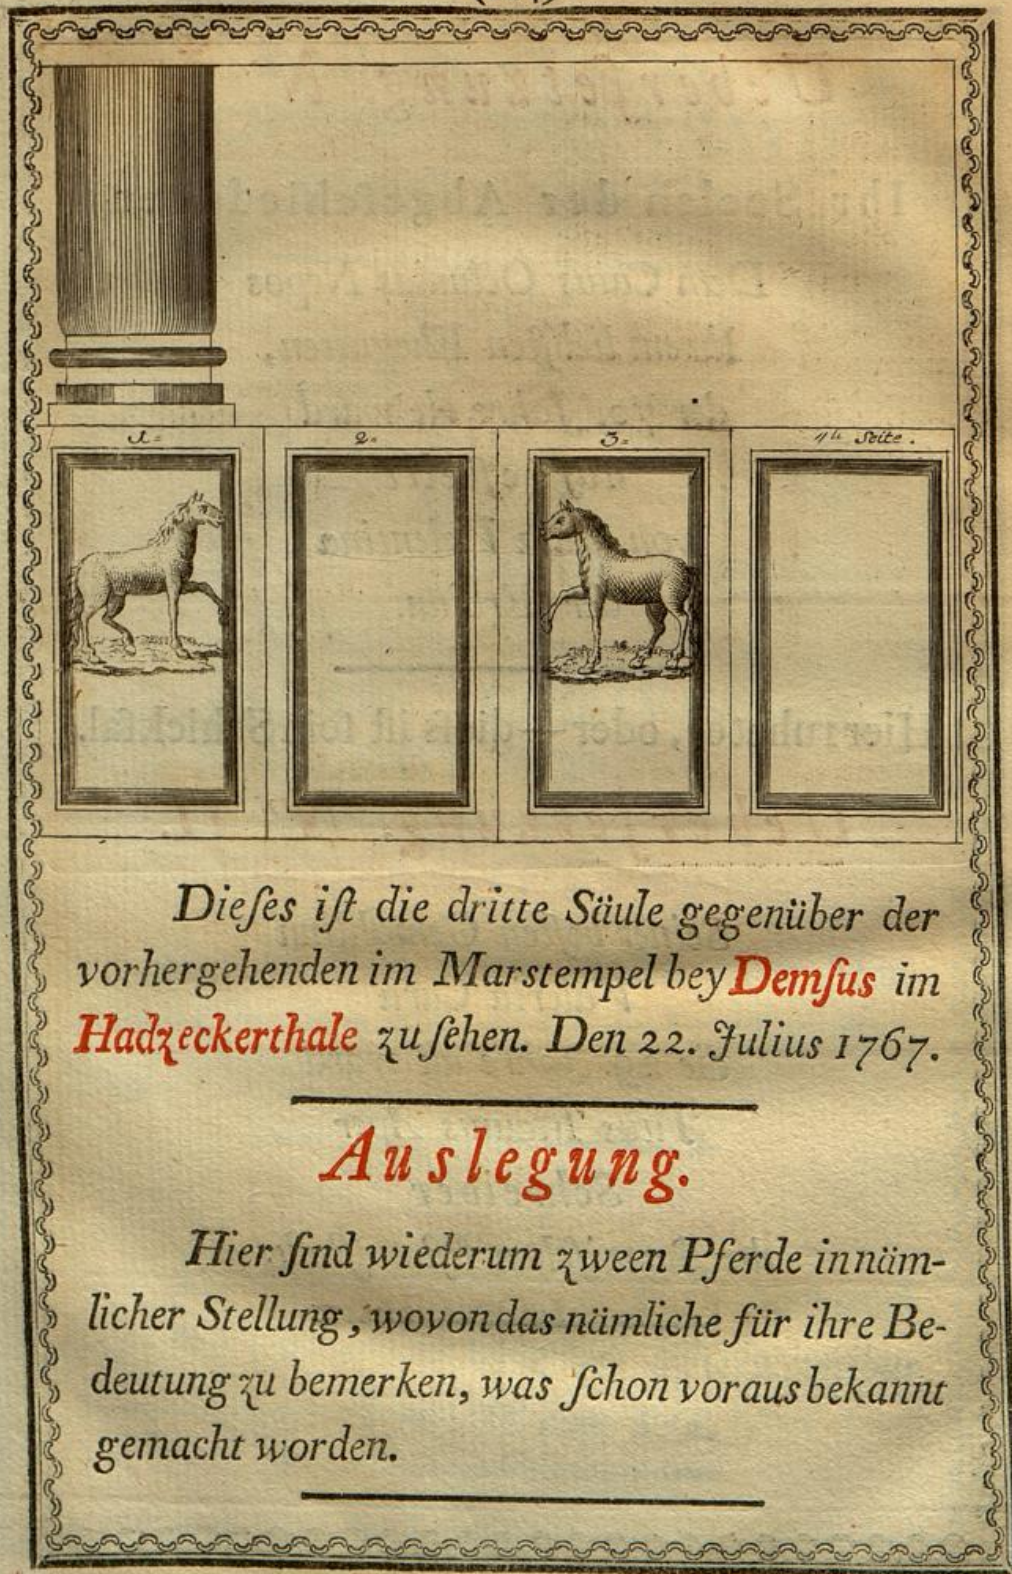 1.
2.
3.
4te Seite.
Dieſes iſt die dritte Säule gegenüber der
vorhergehenden im Marstempel bey Demſus im
Hadzeckerthale zu ſehen. Den 22. Julius 1767.
Auslegung.
Hier ſind wiederum zween Pferde in näm-
licher Stellung, wovon das nämliche für ihre Be-
deutung zu bemerken, was ſchon voraus bekannt
gemacht worden.